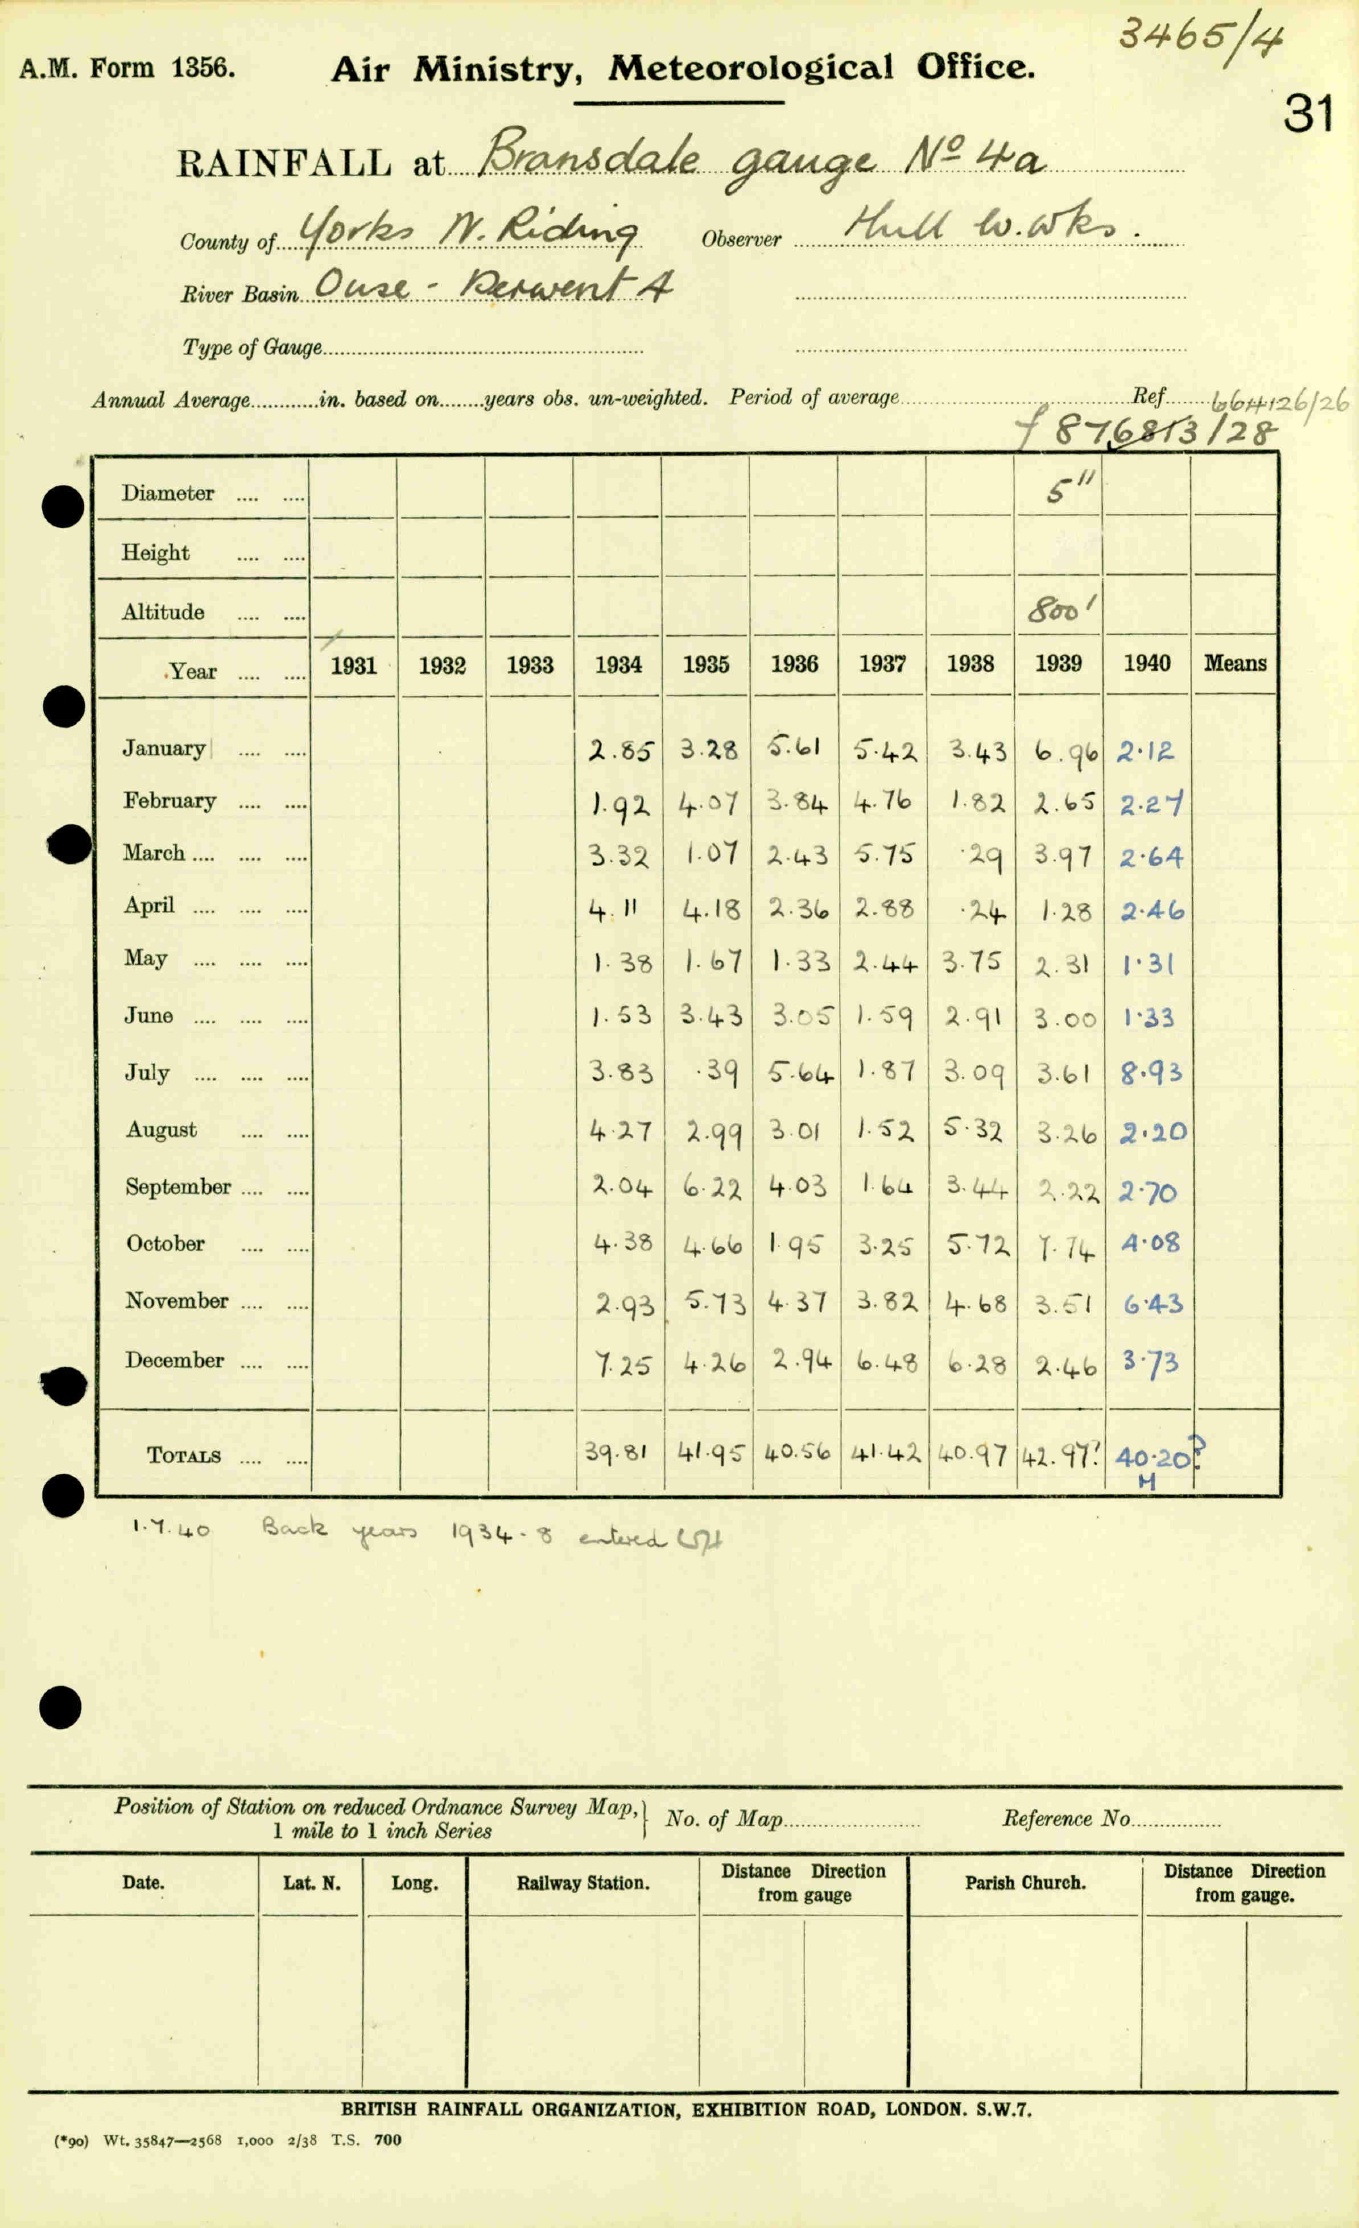 3465/4
A.M. Form 1356. Air Ministry, Meteorological Office.
31
RAINFALL at Bransdale gauge No 4a
County of Yorks N. Riding Observer Hull W. Wks.
River Basin Ouse - Derwent A
Type of Gauge
Annual Average in. based on years obs. un-weighted. Period of average Ref 664126/26
/28
Diameter 5"
Height
Altitude 800'
Year 1931 1932 1933 1934 1935 1936 1937 1938 1939 1940 Means
January 2.85 3.28 5.61 5.42 3.43 6.96 2.12
February 1.92 4.07 3.84 4.76 1.82 2.65 2.27
March 3.32 1.07 2.43 5.75 .29 3.97 2.64
April 4.11 4.18 2.36 2.88 .24 1.28 2.46
May 1.38 1.67 1.33 2.44 3.75 2.31 1.31
June 1.53 3.43 3.05 1.59 2.91 3.00 1.33
July 3.83 .39 5.64 1.87 3.09 3.61 8.93
August 4.27 2.99 3.01 1.52 5.32 3.26 2.20
September 2.04 6.22 4.03 1.64 3.44 2.22 2.70
October 4.38 4.66 1.95 3.25 5.72 7.74 4.08
November 2.93 5.73 4.37 3.82 4.68 3.51 6.43
December 7.25 4.26 2.94 6.48 6.28 2.46 3.73
TOTALS 39.81 41.95 40.56 41.42 40.97 42.97? 40.20?
M
1.7.40 Back years 1934-8 entered
Position of Station on reduced Ordnance Survey Map, 1 mile to 1 inch Series } No. of Map Reference No
Date. Lat. N. Long. Railway Station. Distance Direction from gauge Parish Church. Distance Direction from gauge.
BRITISH RAINFALL ORGANIZATION, EXHIBITION ROAD, LONDON. S.W.7.
(*90) Wt. 35847—2568 1,000 2/38 T.S. 700